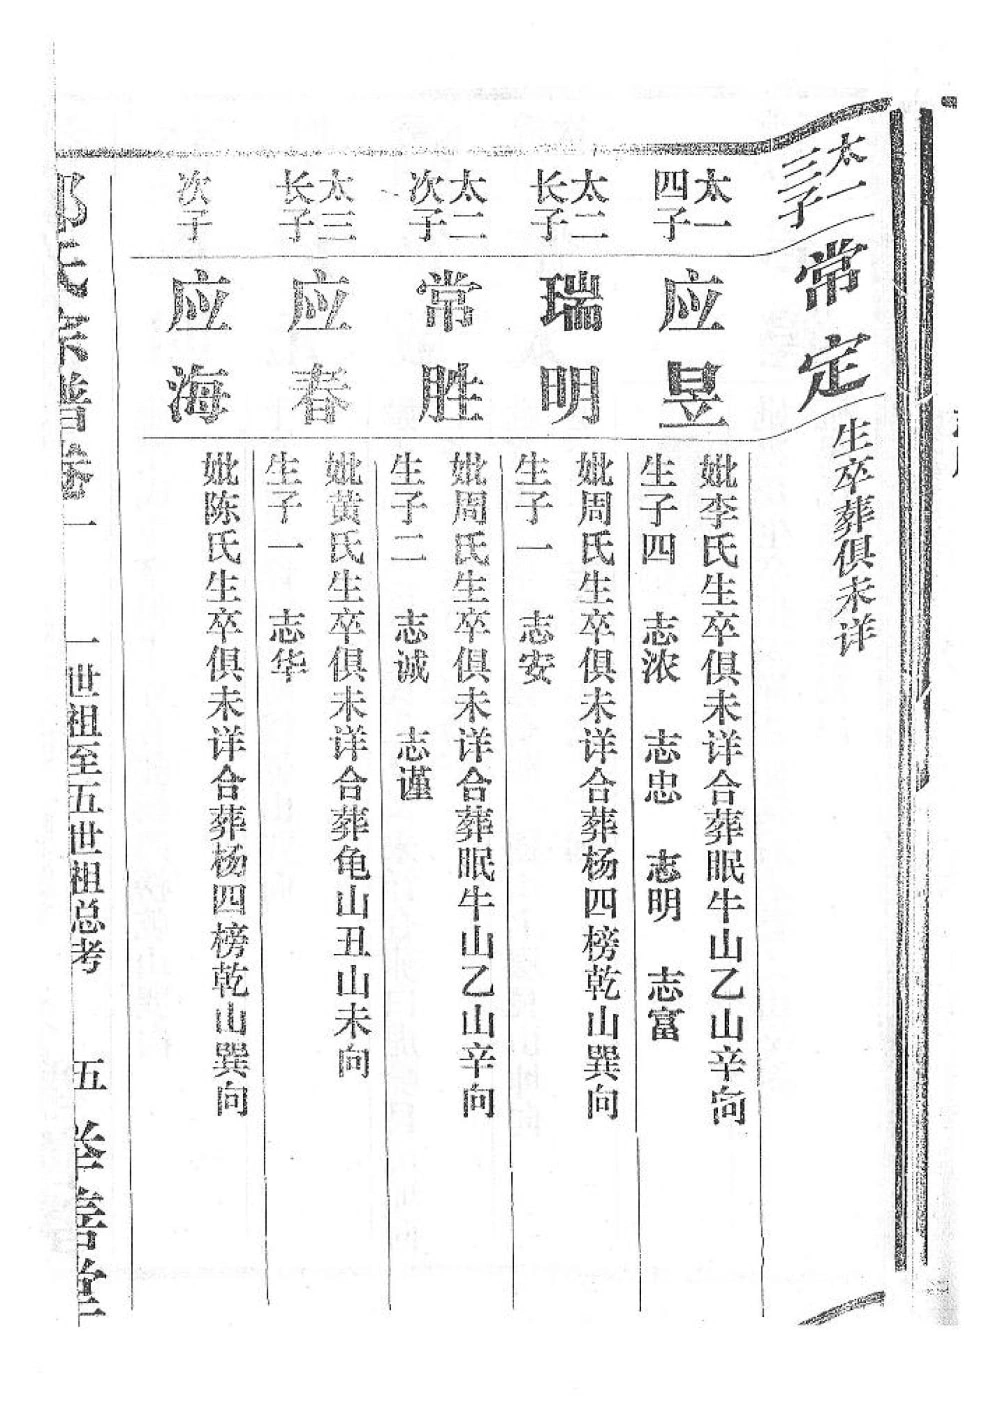 太一
三子
常定
生卒葬俱未详
太一
四子
应昱
妣李氏生卒俱未详合葬眠牛山乙山辛向
生子四 志浓 志忠 志明 志富
太二
长子
瑞明
妣周氏生卒俱未详合葬杨四榜乾山巽向
生子一 志安
太二
次子
常胜
妣周氏生卒俱未详合葬眠牛山乙山辛向
生子二 志诚 志谨
太三
长子
应春
妣黄氏生卒俱未详合葬龟山丑山未向
生子一 志华
次子
应海
妣陈氏生卒俱未详合葬杨四榜乾山巽向
氏宗谱卷一 一世祖至五世祖总考 五